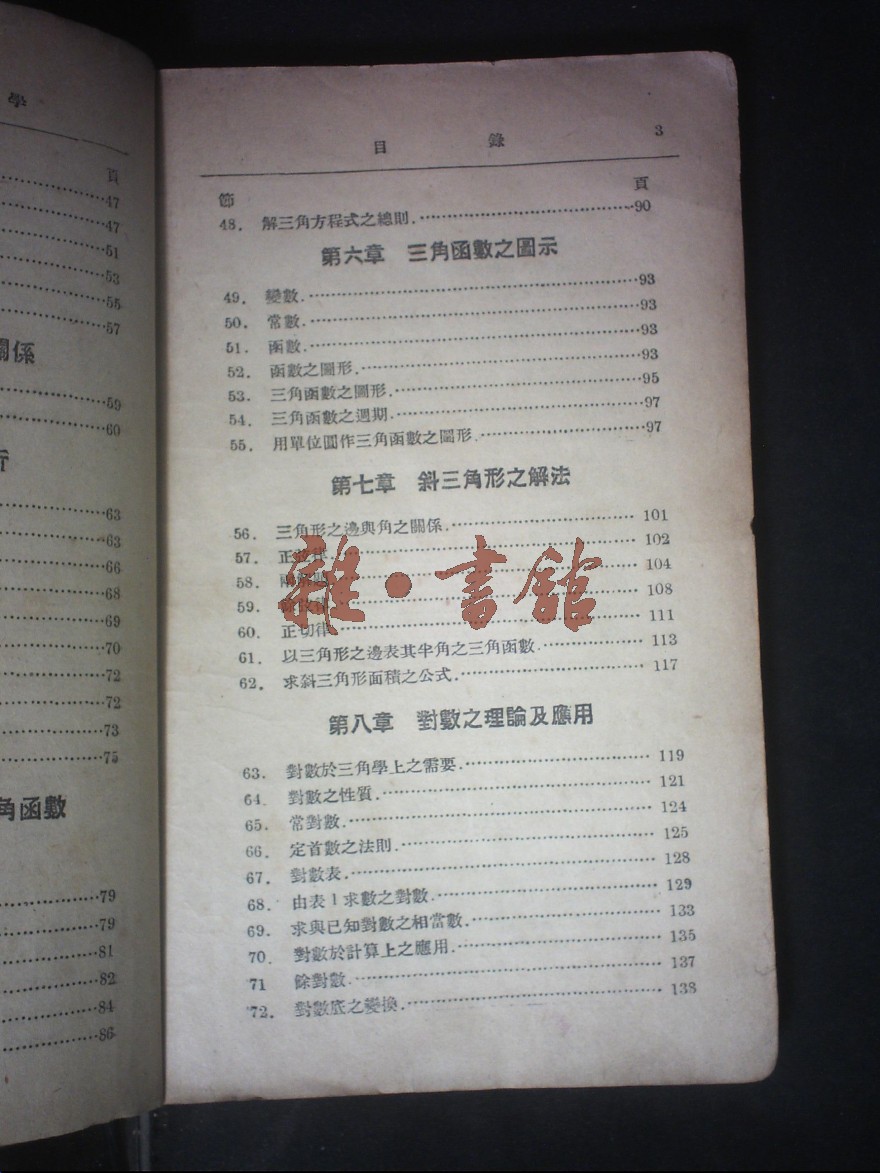 學
頁
47
47
51
53
55
57
關係
59
60
63
63
66
68
69
70
72
72
73
75
角函數
79
79
81
82
84
86
目 錄 3
節 頁
48. 解三角方程式之總則. 90
第六章 三角函數之圖示
49. 變數. 93
50. 常數. 93
51. 函數. 93
52. 函數之圖形. 93
53. 三角函數之圖形. 95
54. 三角函數之週期. 97
55. 用單位圓作三角函數之圖形. 97
第七章 斜三角形之解法
56. 三角形之邊與角之關係. 101
57. 正弦律. 102
58. 104
59. 108
60. 正切律. 111
61. 以三角形之邊表其半角之三角函數. 113
62. 求斜三角形面積之公式. 117
雜·書館
第八章 對數之理論及應用
63. 對數於三角學上之需要. 119
64. 對數之性質. 121
65. 常對數. 124
66. 定首數之法則. 125
67. 對數表. 128
68. 由表1求數之對數. 129
69. 求與已知對數之相當數. 133
70. 對數於計算上之應用. 135
71 餘對數. 137
72. 對數底之變換. 138